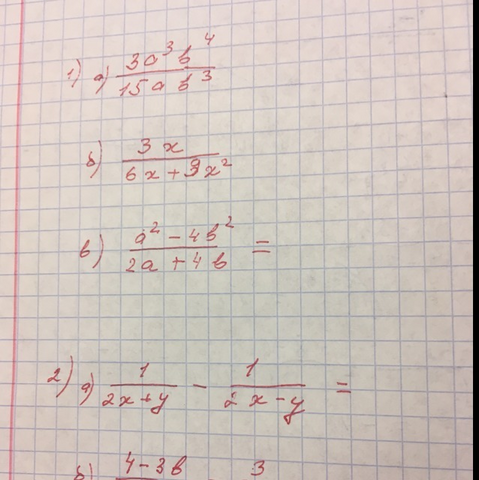 1) а) 3a³b⁴ / 15ab³
б) 3x / 6x + 9x²
в) a² − 4b² / 2a + 4b =
2) а) 1 / 2x + y − 1 / 2x − y =
б) 4 − 3b 3